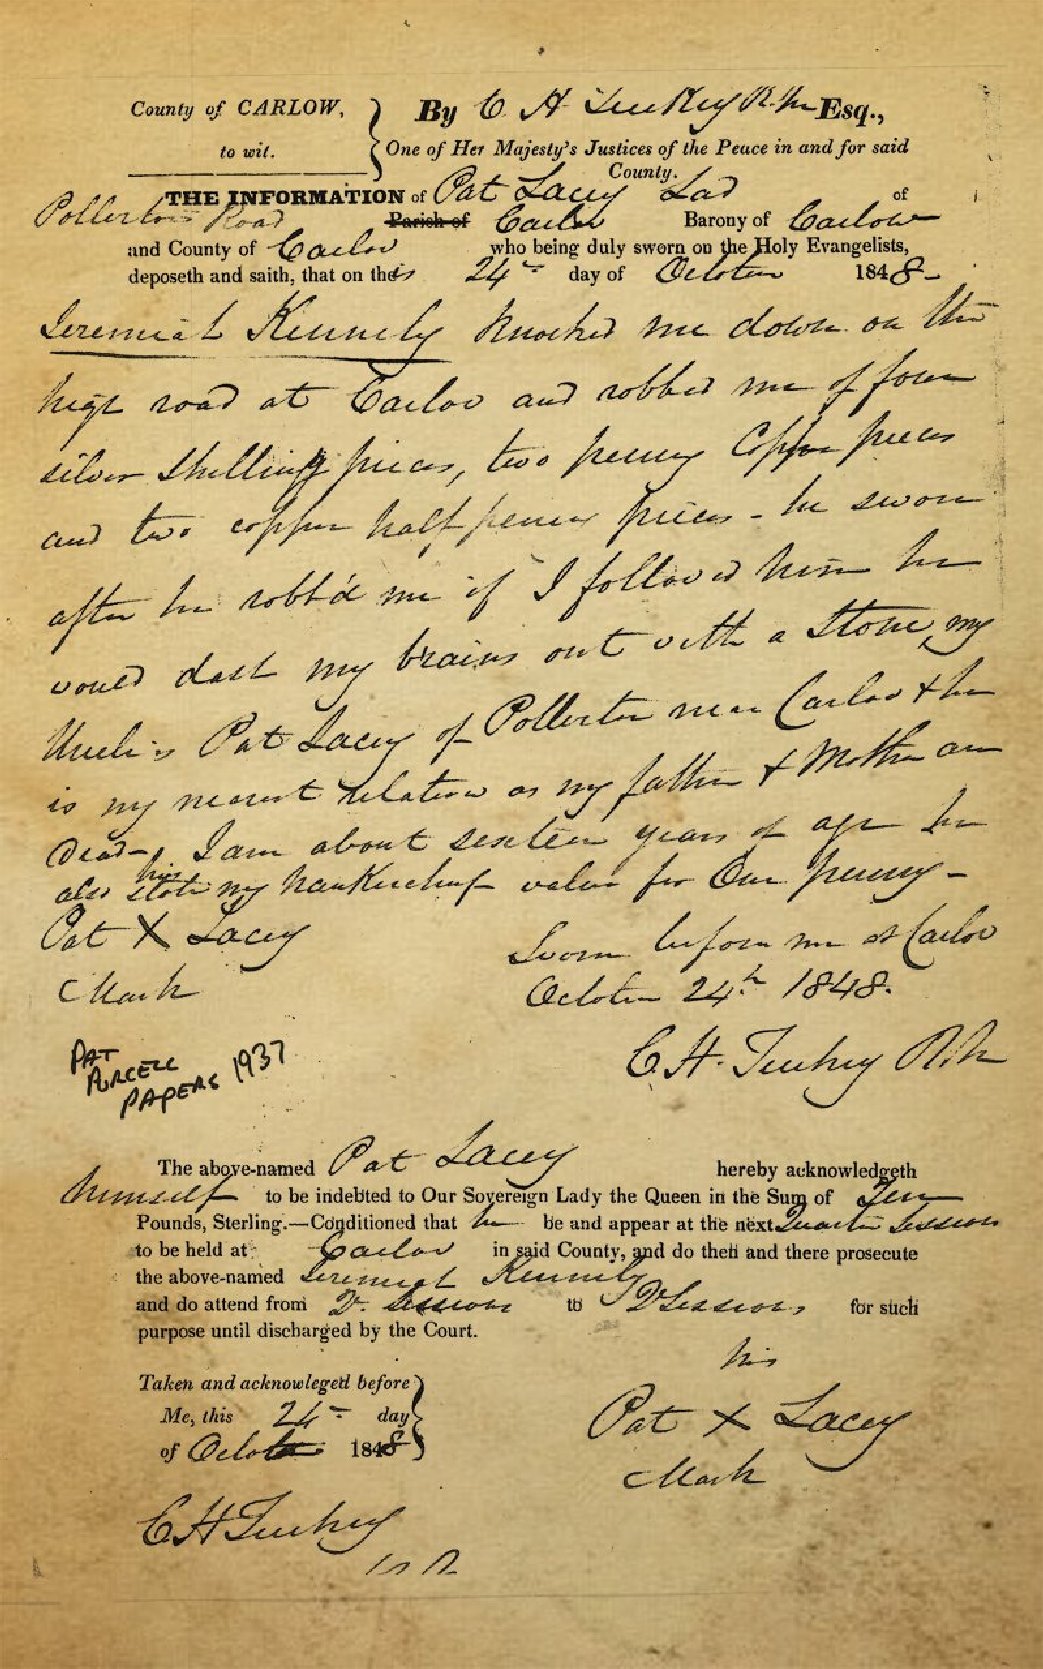 County of CARLOW, to wit.
By C. H. Tuckey R.M. Esq.,
One of Her Majesty's Justices of the Peace in and for said County.
THE INFORMATION of Pat Lacey Lad of
Pollerton Road Parish of Carlow Barony of Carlow
and County of Carlow who being duly sworn on the Holy Evangelists,
deposeth and saith, that on this 24th day of October 1848-
Jeremiah Kennely knocked me down on the
high road at Carlow and robbed me of four
silver shilling pieces, two penny Copper pieces
and two copper half penny pieces - he swore
after he robb'd me if I followed him he
would dash my brains out with a stone, my
Uncle is Pat Lacey of Pollerton near Carlow & he
is my nearest relation as my father & Mother are
dead-, I am about sixteen years of age he
also stole my hankerchief value for One penny -
his
Pat X Lacey
Mark
Sworn before me at Carlow
October 24th 1848.
C. H. Tuckey R.M
PAT
PURCELL
PAPERS 1937
The above-named Pat Lacey hereby acknowledgeth
himself to be indebted to Our Sovereign Lady the Queen in the Sum of Ten
Pounds, Sterling.—Conditioned that he be and appear at the next Quarter Session
to be held at Carlow in said County, and do then and there prosecute
the above-named Jeremiah Kennely
and do attend from Q. Session to Q Session for such
purpose until discharged by the Court.
Taken and acknowleged before
Me, this 24th day
of October 1848
his
Pat X Lacey
Mark
C H Tuckey